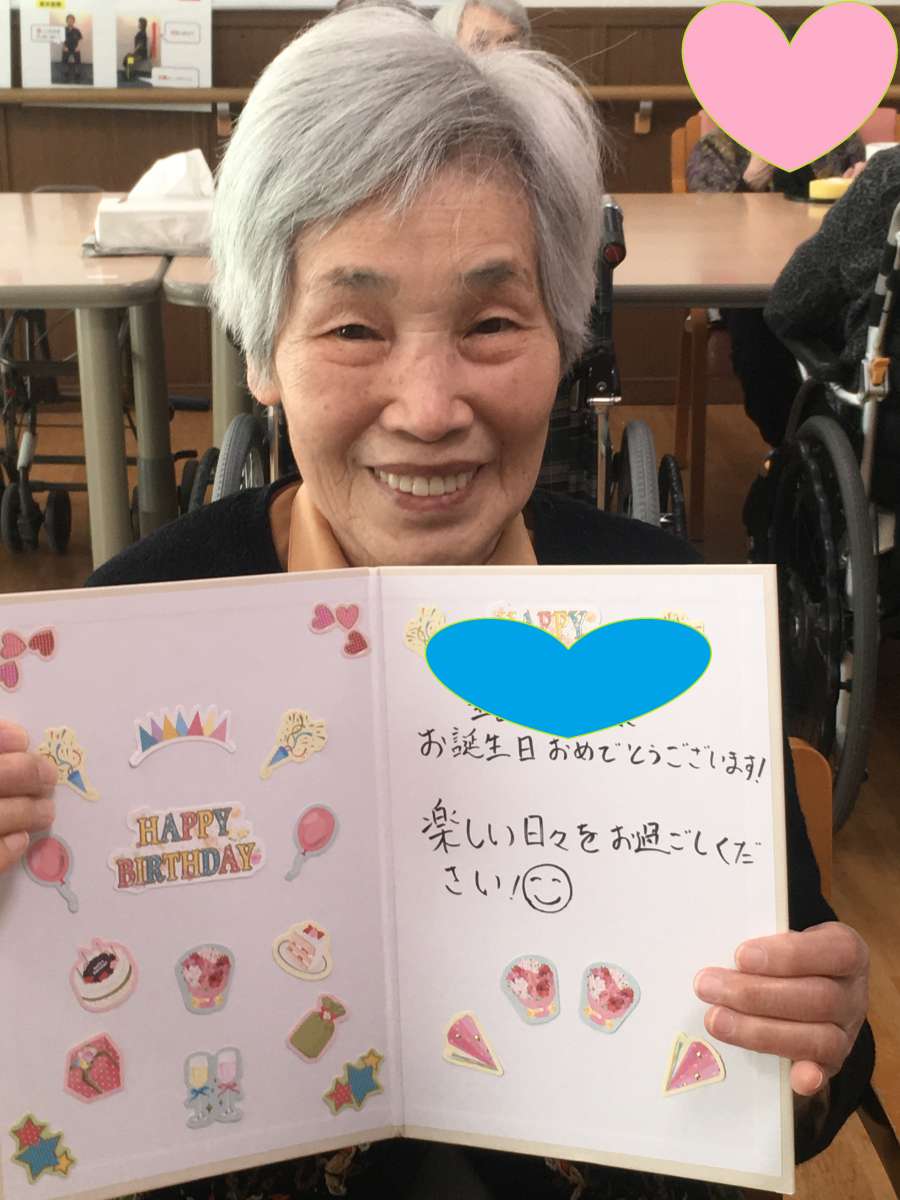 HAPPY
BIRTHDAY
HAPPY
お誕生日おめでとうございます!
楽しい日々をお過ごしくだ
さい!